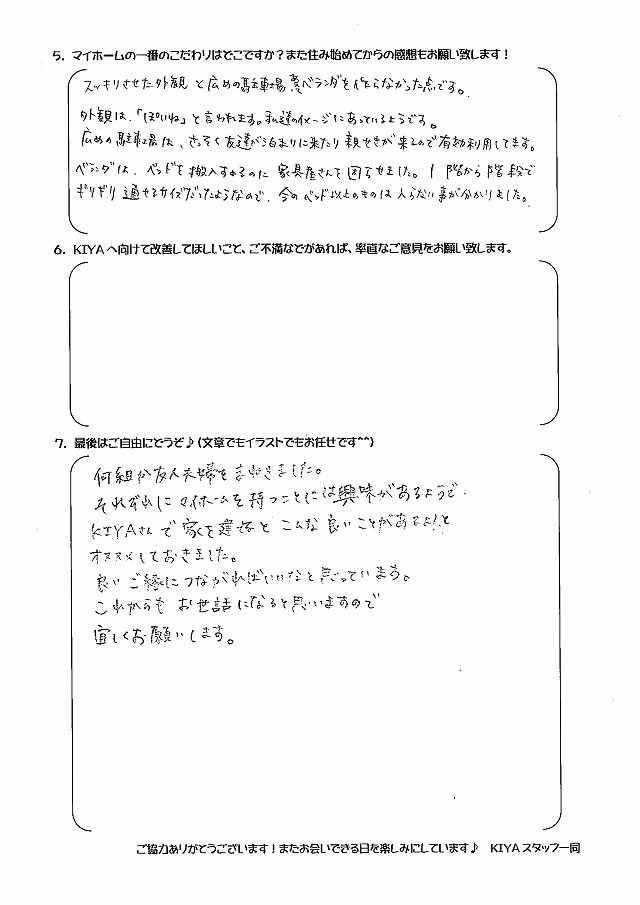 5. マイホームの一番のこだわりはどこですか？また住み始めてからの感想もお願い致します！
スッキリさせた外観と広めの駐車場、ベランダを作らなかった点です。
外観は、「ぽいね」と言われます。私達のイメージにあっているようです。
広めの駐車場は、さっそく友達が泊まりに来たり親せきが来るので有効利用してます。
ベランダは、ベッドを搬入するのに家具屋さんを困らせました。1階から階段で
ギリギリ通せるサイズだったようなので、今のベッド以上のものは入らない事が分かりました。
6. KIYAへ向けて改善してほしいこと、ご不満などがあれば、率直なご意見をお願い致します。
7. 最後はご自由にどうぞ♪(文章でもイラストでもお任せです^^)
何組か友人夫婦をまねきました。
それぞれにマイホームを持つことには興味があるようで、
KIYAさんで家を建てるとこんな良いことがあるよ！と
オススメしておきました。
良いご縁につながればいいなと思っています。
これからもお世話になると思いますので
宜しくお願いします。
ご協力ありがとうございます！またお会いできる日を楽しみにしています♪ KIYAスタッフ一同